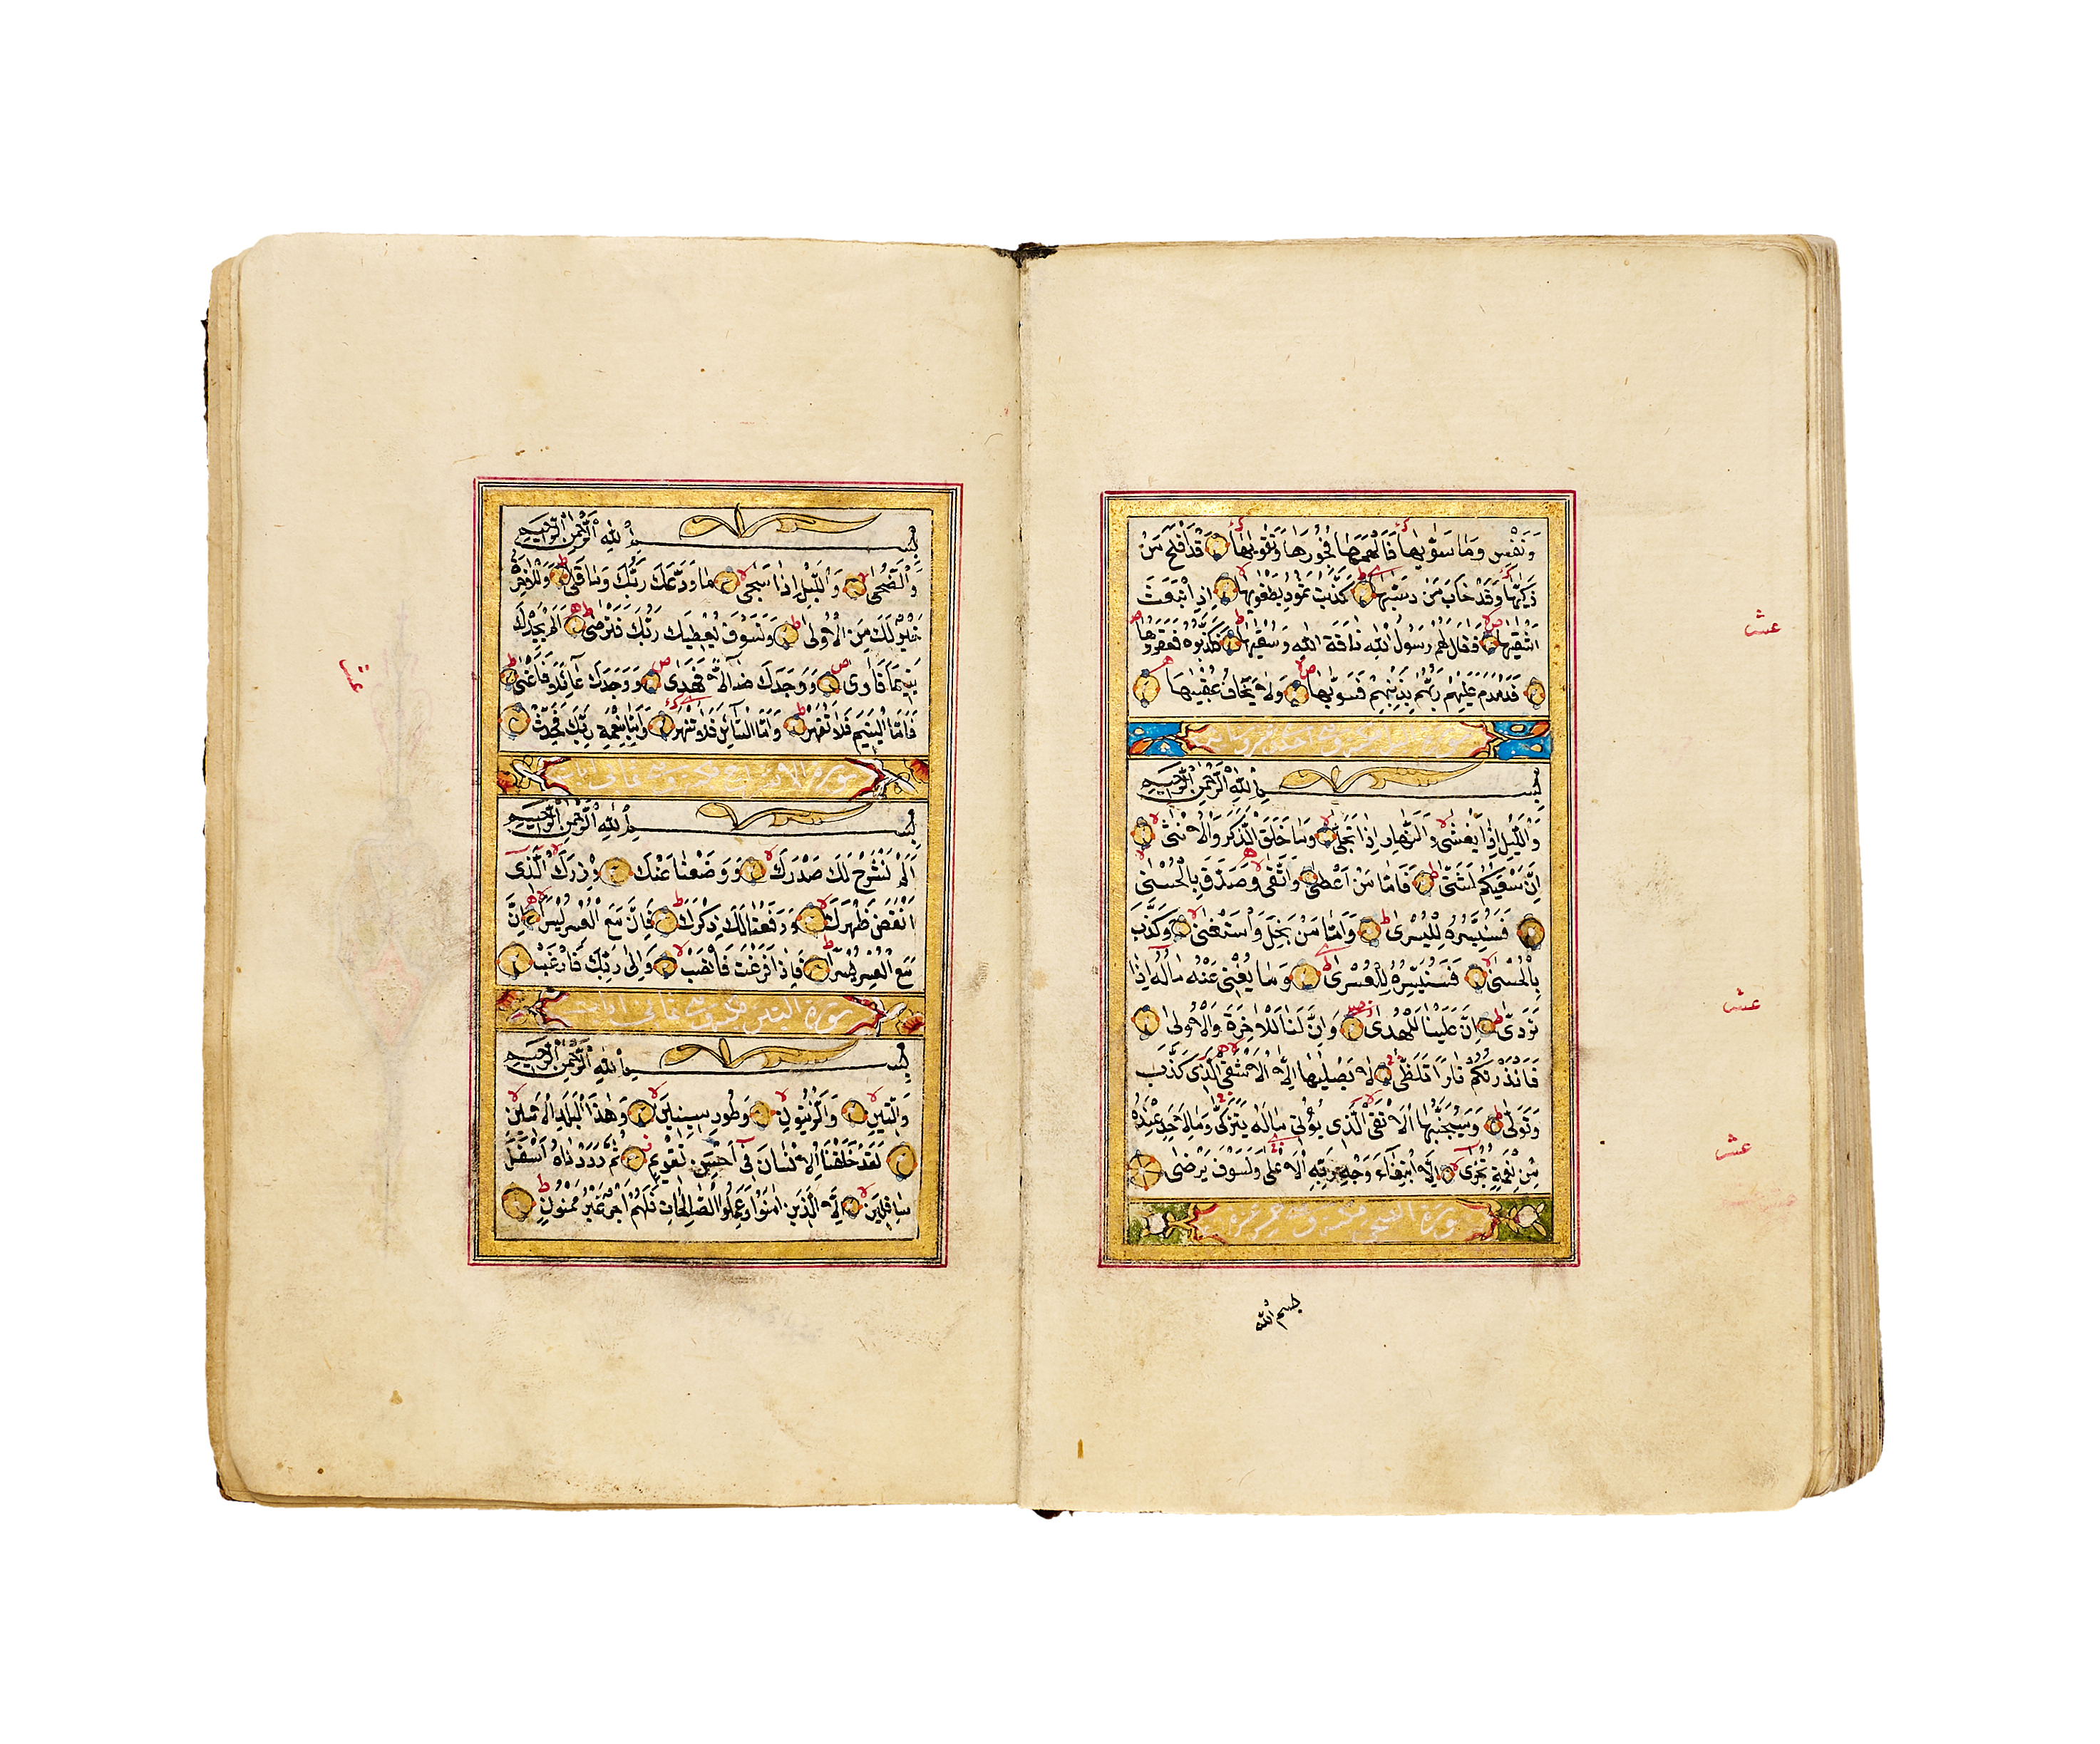 وَنَفْسٍ وَمَا سَوّٰيهَا فَاَلْهَمَهَا فُجُورَهَا وَتَقْوٰيهَا قَدْ اَفْلَحَ مَنْ
زَكّٰيهَا وَقَدْ خَابَ مَنْ دَسّٰيهَا كَذَّبَتْ ثَمُودُ بِطَغْوٰيهَا اِذِ انْبَعَثَ
اَشْقٰيهَا فَقَالَ لَهُمْ رَسُولُ اللّٰهِ نَاقَةَ اللّٰهِ وَسُقْيٰهَا فَكَذَّبُوهُ فَعَقَرُوهَا
فَدَمْدَمَ عَلَيْهِمْ رَبُّهُمْ بِذَنْبِهِمْ فَسَوّٰيهَا وَلَا يَخَافُ عُقْبٰيهَا
بِسْمِ اللّٰهِ الرَّحْمٰنِ الرَّحِيمِ
وَالَّيْلِ اِذَا يَغْشٰى وَالنَّهَارِ اِذَا تَجَلّٰى وَمَا خَلَقَ الذَّكَرَ وَالْاُنْثٰى
اِنَّ سَعْيَكُمْ لَشَتّٰى فَاَمَّا مَنْ اَعْطٰى وَاتَّقٰى وَصَدَّقَ بِالْحُسْنٰى
فَسَنُيَسِّرُهُ لِلْيُسْرٰى وَاَمَّا مَنْ بَخِلَ وَاسْتَغْنٰى وَكَذَّبَ
بِالْحُسْنٰى فَسَنُيَسِّرُهُ لِلْعُسْرٰى وَمَا يُغْنِى عَنْهُ مَالُهُ اِذَا
تَرَدّٰى اِنَّ عَلَيْنَا لَلْهُدٰى وَاِنَّ لَنَا لَلْاٰخِرَةَ وَالْاُولٰى
فَاَنْذَرْتُكُمْ نَارًا تَلَظّٰى لَا يَصْلٰيهَا اِلَّا الْاَشْقٰى الَّذِى كَذَّبَ
وَتَوَلّٰى وَسَيُجَنَّبُهَا الْاَتْقٰى الَّذِى يُؤْتِى مَالَهُ يَتَزَكّٰى وَمَا لِاَحَدٍ عِنْدَهُ
مِنْ نِعْمَةٍ تُجْزٰى اِلَّا ابْتِغَاءَ وَجْهِ رَبِّهِ الْاَعْلٰى وَلَسَوْفَ يَرْضٰى
سورة الضحى
بسم الله
عشر
عشر
عشر
بِسْمِ اللّٰهِ الرَّحْمٰنِ الرَّحِيمِ
وَالضُّحٰى وَالَّيْلِ اِذَا سَجٰى مَا وَدَّعَكَ رَبُّكَ وَمَا قَلٰى وَلَلْاٰخِرَةُ
خَيْرٌ لَكَ مِنَ الْاُولٰى وَلَسَوْفَ يُعْطِيكَ رَبُّكَ فَتَرْضٰى اَلَمْ يَجِدْكَ
يَتِيمًا فَاٰوٰى وَوَجَدَكَ ضَالًّا فَهَدٰى وَوَجَدَكَ عَائِلًا فَاَغْنٰى
فَاَمَّا الْيَتِيمَ فَلَا تَقْهَرْ وَاَمَّا السَّائِلَ فَلَا تَنْهَرْ وَاَمَّا بِنِعْمَةِ رَبِّكَ فَحَدِّثْ
سورة الانشراح مكية وهى ثمانى ايات
بِسْمِ اللّٰهِ الرَّحْمٰنِ الرَّحِيمِ
اَلَمْ نَشْرَحْ لَكَ صَدْرَكَ وَوَضَعْنَا عَنْكَ وِزْرَكَ الَّذِى
اَنْقَضَ ظَهْرَكَ وَرَفَعْنَا لَكَ ذِكْرَكَ فَاِنَّ مَعَ الْعُسْرِ يُسْرًا اِنَّ
مَعَ الْعُسْرِ يُسْرًا فَاِذَا فَرَغْتَ فَانْصَبْ وَاِلٰى رَبِّكَ فَارْغَبْ
سورة التين مكية وهى ثمانى ايات
بِسْمِ اللّٰهِ الرَّحْمٰنِ الرَّحِيمِ
وَالتِّينِ وَالزَّيْتُونِ وَطُورِ سِينِينَ وَهٰذَا الْبَلَدِ الْاَمِينِ
لَقَدْ خَلَقْنَا الْاِنْسَانَ فِى اَحْسَنِ تَقْوِيمٍ ثُمَّ رَدَدْنَاهُ اَسْفَلَ
سَافِلِينَ اِلَّا الَّذِينَ اٰمَنُوا وَعَمِلُوا الصَّالِحَاتِ فَلَهُمْ اَجْرٌ غَيْرُ مَمْنُونٍ
عشر